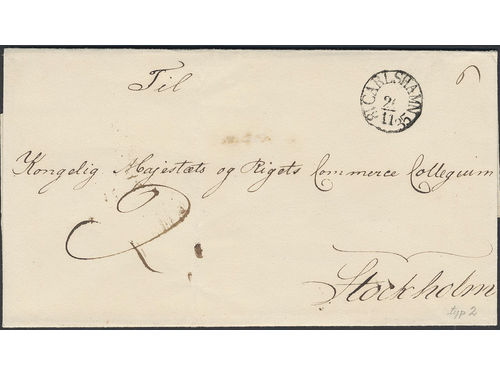 Til
CARLSHAMN
11
Kongelig Majestæts og Rigets Commerce Collegium
Stockholm
typ 2